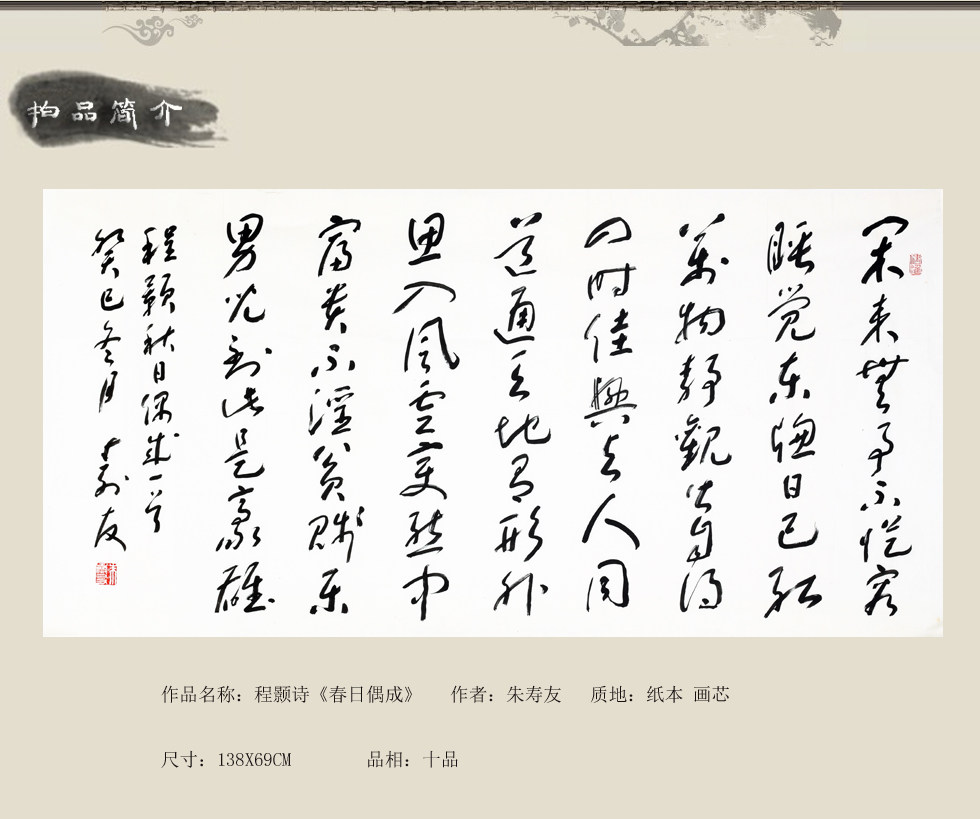 拍品简介
闲来無事不從容
睡觉东窗日已红
萬物静觀皆自得
四时佳興与人同
道通天地有形外
思入风雲变態中
富贵不淫贫贱乐
男儿到此是豪雄
程颢秋日偶成一首
癸巳冬月 寿友
作品名称：程颢诗《春日偶成》 作者：朱寿友 质地：纸本 画芯
尺寸：138X69CM 品相：十品